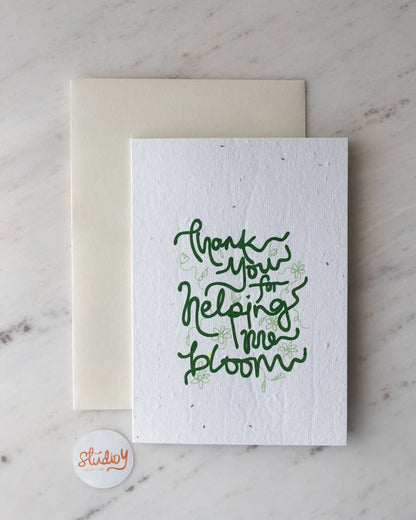 Thank
you
for
helping
me
bloom
studio y